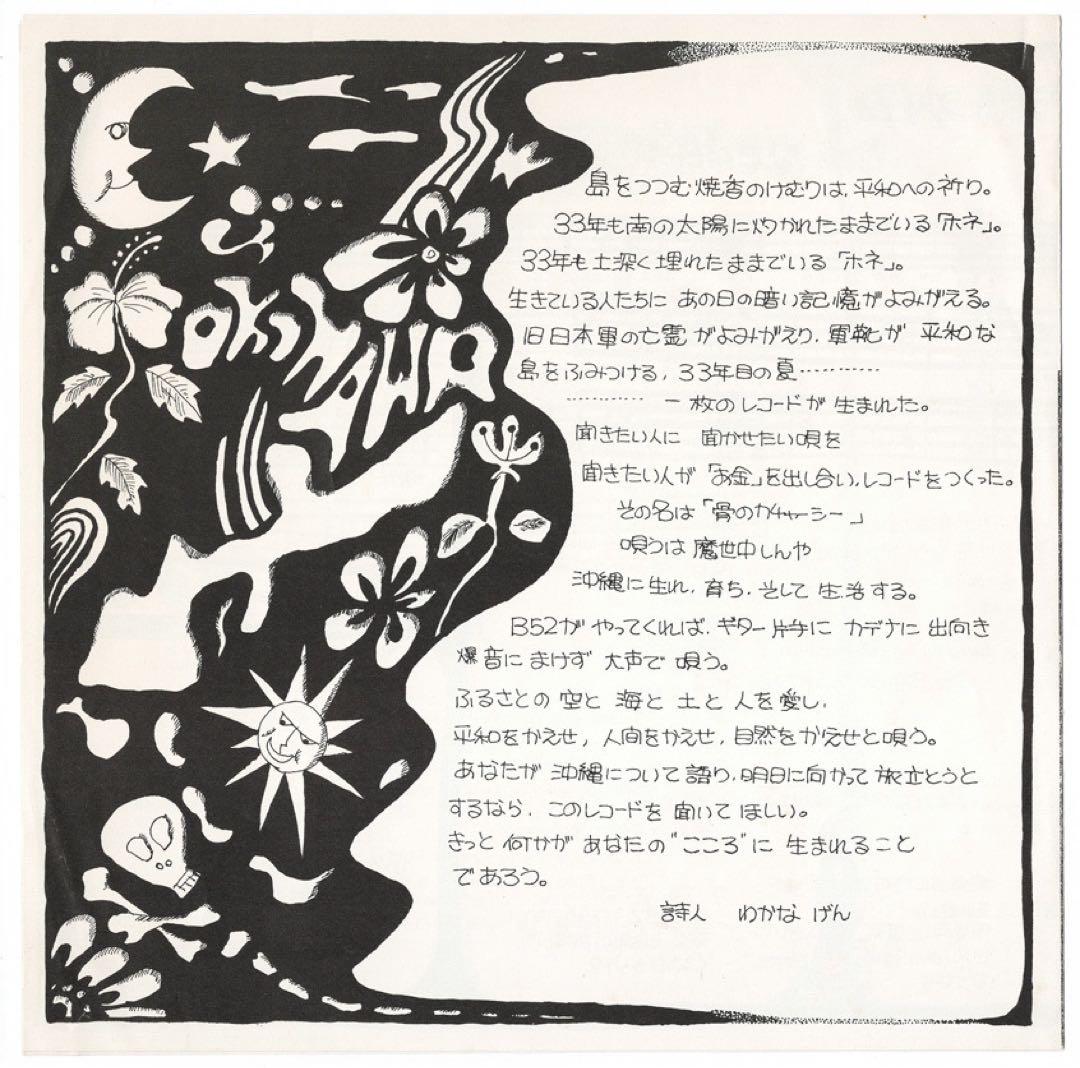 OKINAWA
島をつつむ焼香のけむりは、平和への祈り。
33年も南の太陽に灼かれたままでいる「ホネ」。
33年も土深く埋れたままでいる「ホネ」。
生きている人たちに あの日の暗い記憶がよみがえる。
旧日本軍の亡霊がよみがえり、軍靴が 平和な
島をふみつける、33年目の夏…………
………… 一枚のレコードが 生まれた。
聞きたい人に 聞かせたい唄を
聞きたい人が「お金」を出し合い、レコードをつくった。
その名は「骨のカチャーシー」
唄うは 魔世中しんや
沖縄に生れ、育ち、そして 生活する。
B52が やってくれば、ギター片手に カデナに 出向き
爆音に まけず 大声で 唄う。
ふるさとの 空と 海と 土と 人を愛し、
平和をかえせ, 人間をかえせ, 自然をかえせと唄う。
あなたが 沖縄について語り、明日に向かって 旅立とうと
するなら、このレコードを 聞いて ほしい。
きっと 何かが あなたの"こころ"に 生まれること
であろう。
詩人 わかな げん